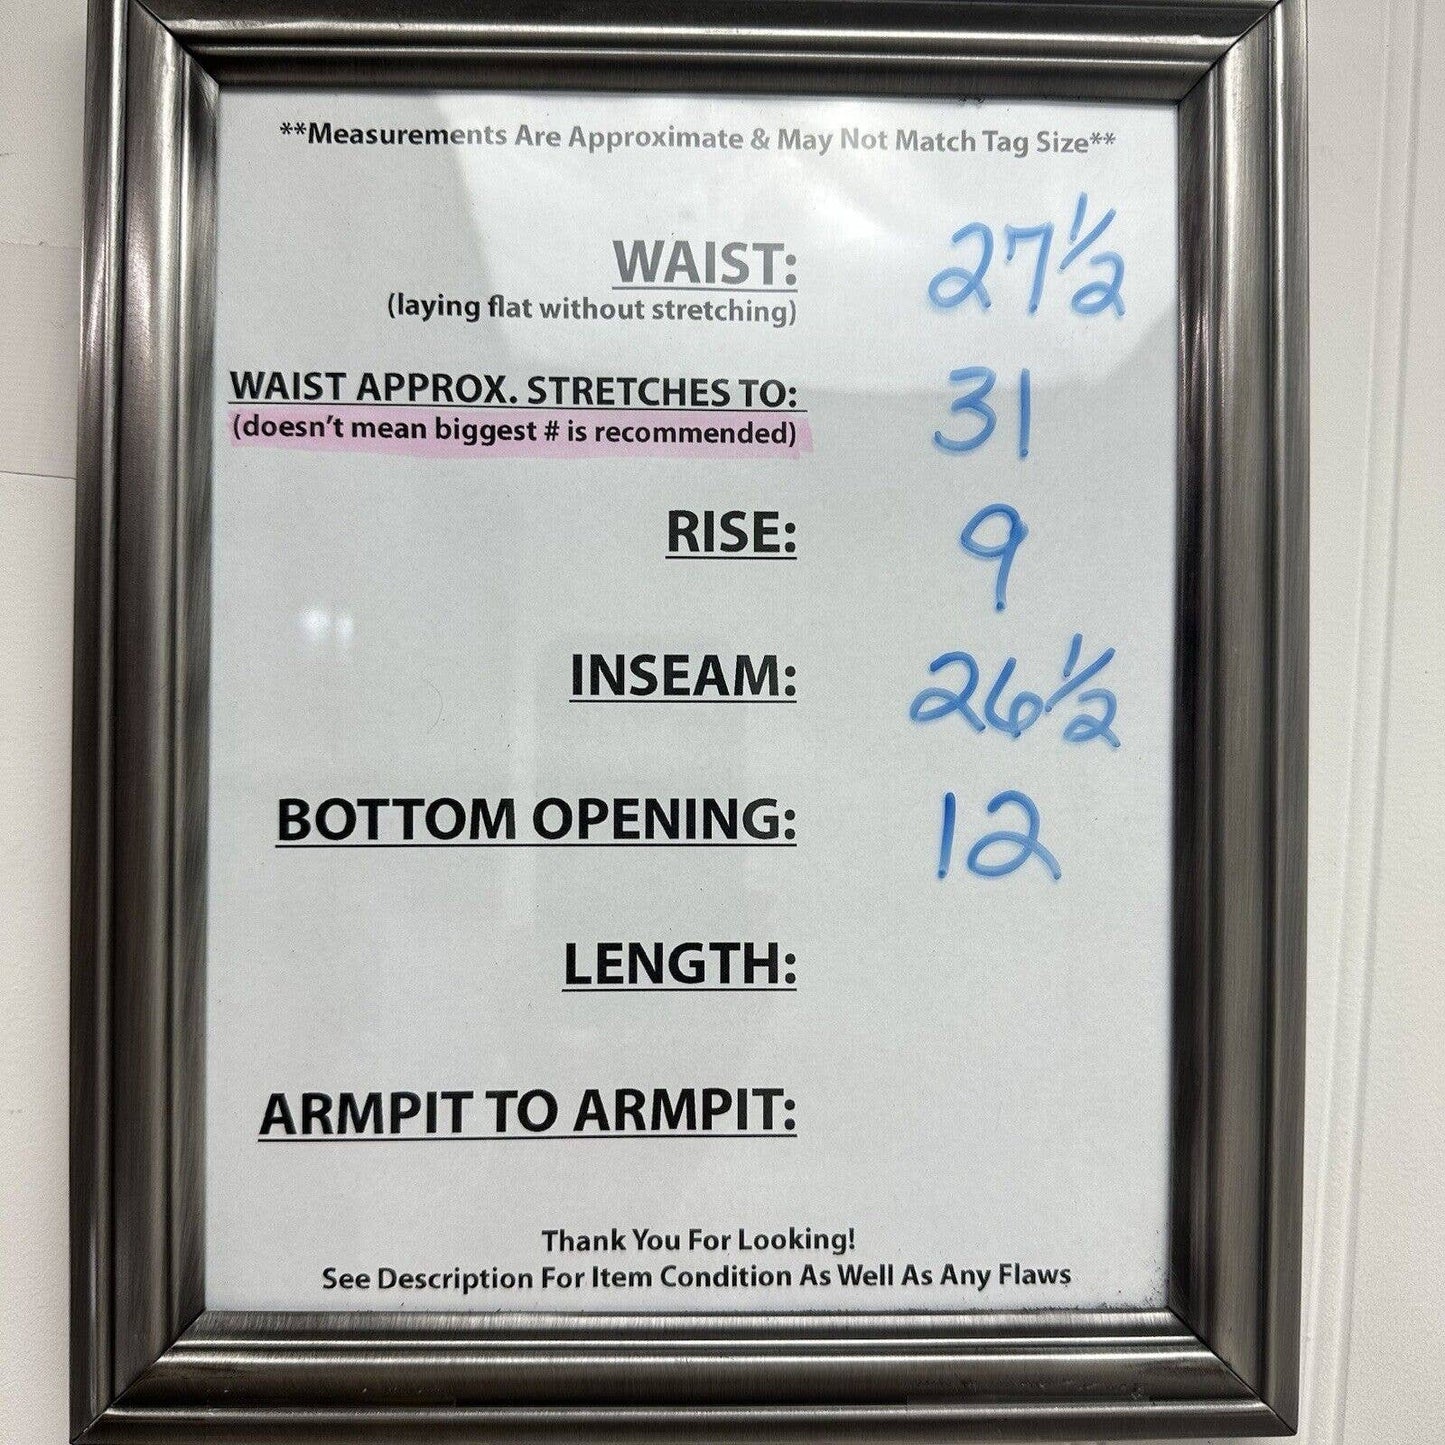 **Measurements Are Approximate & May Not Match Tag Size**
WAIST: 27 1/2
(laying flat without stretching)
WAIST APPROX. STRETCHES TO: 31
(doesn't mean biggest # is recommended)
RISE: 9
INSEAM: 26 1/2
BOTTOM OPENING: 12
LENGTH:
ARMPIT TO ARMPIT:
Thank You For Looking!
See Description For Item Condition As Well As Any Flaws